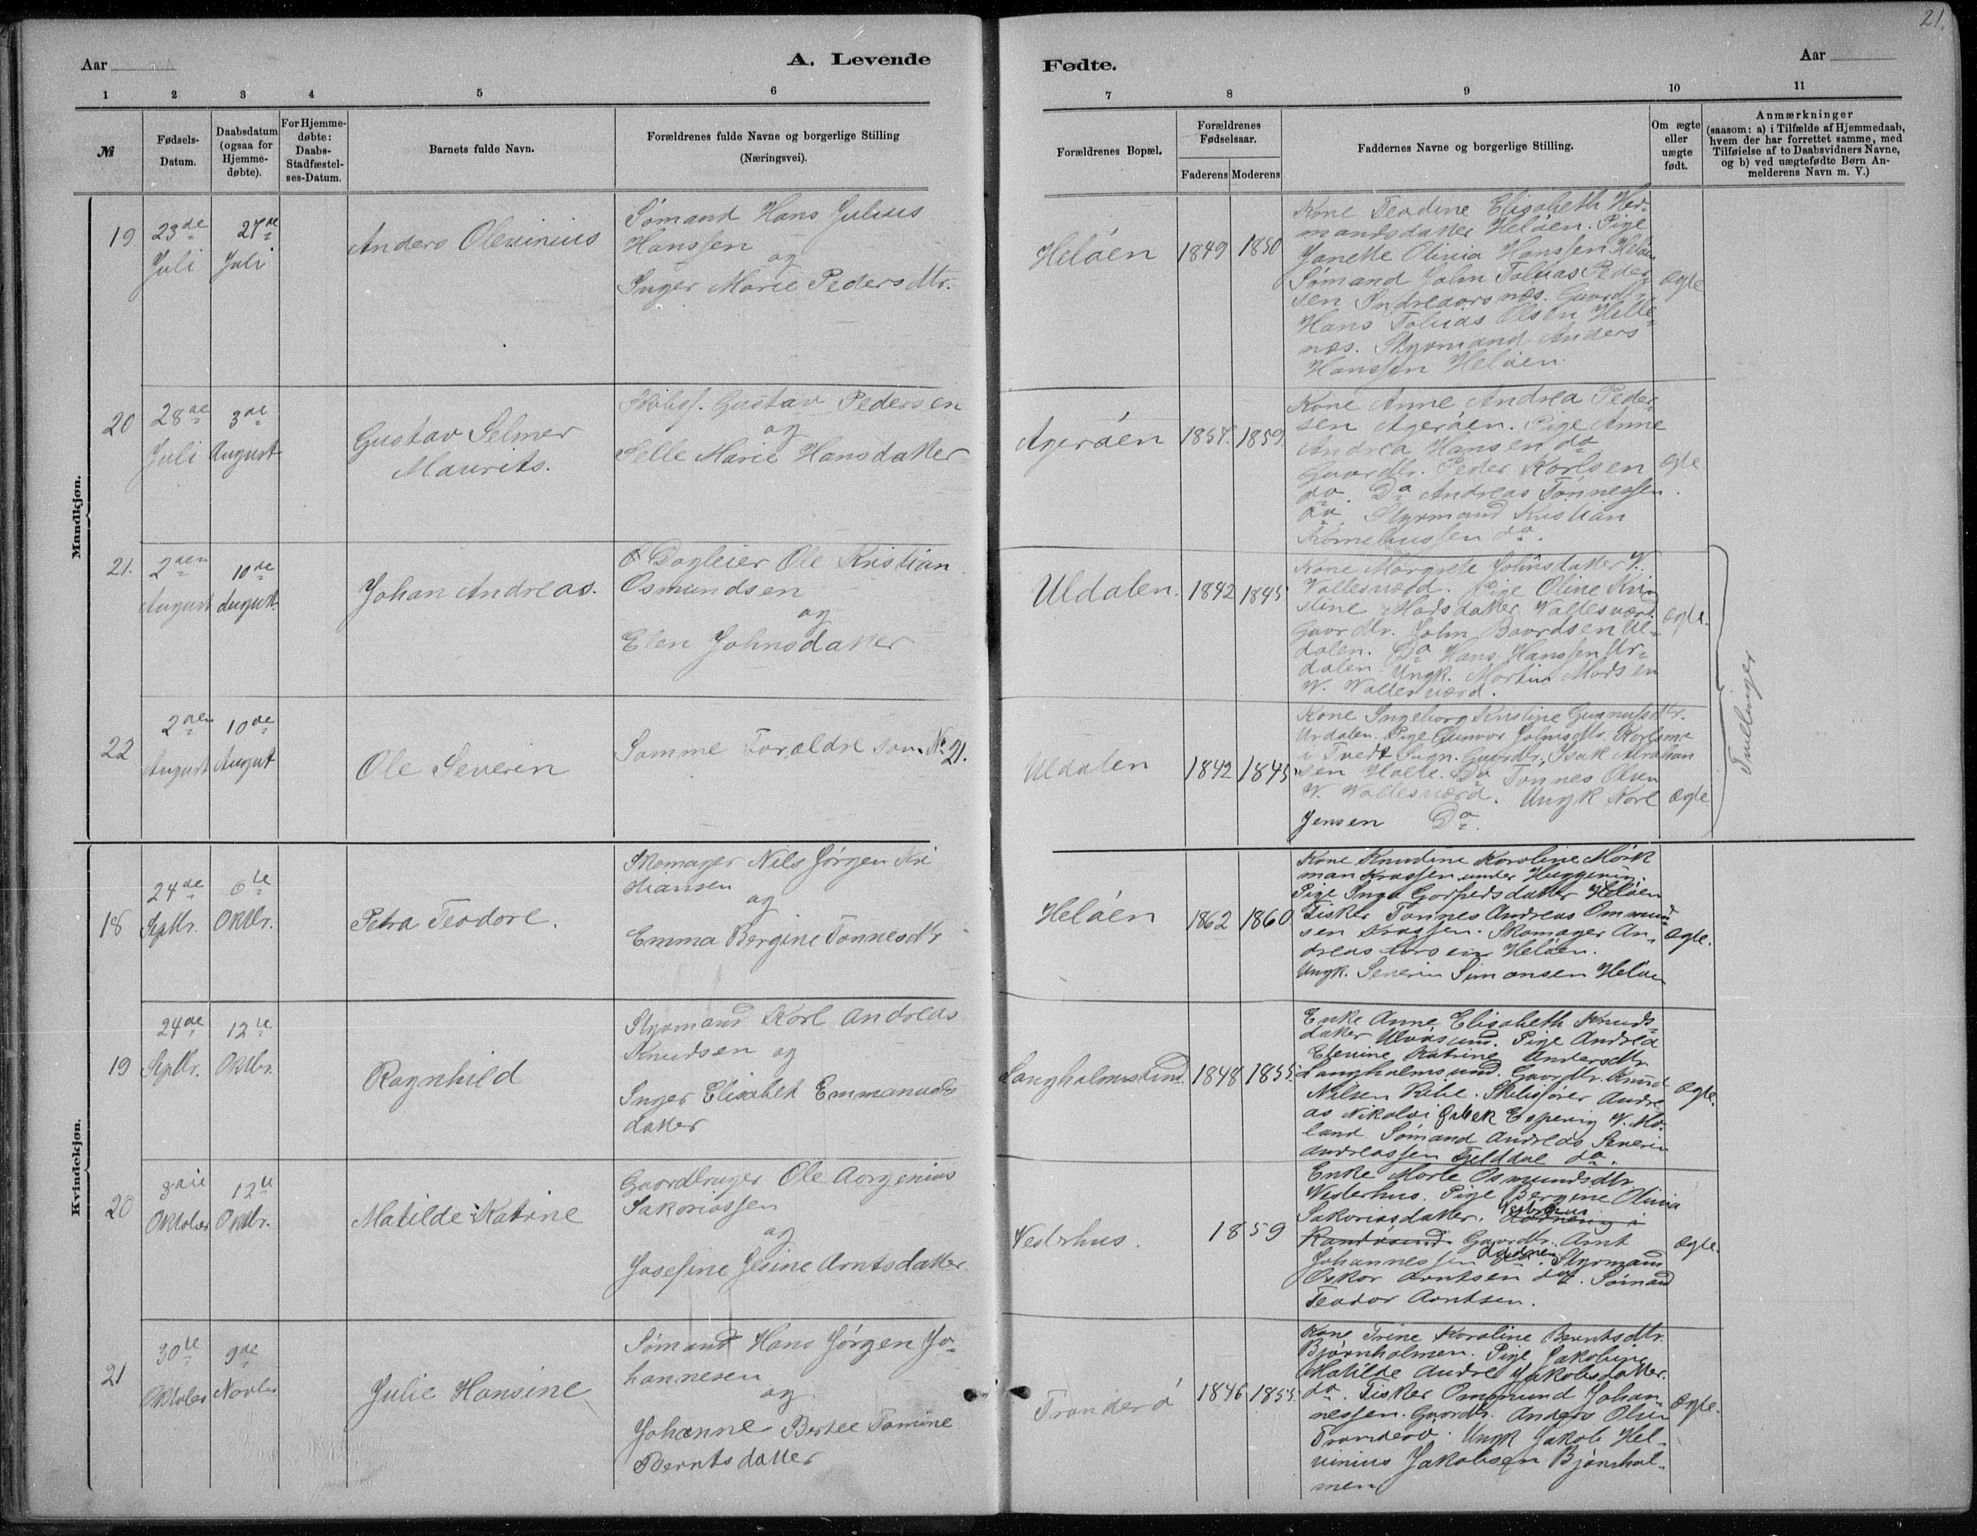 21.
Aar
A. Levende
Fødte.
Aar
1 2 3 4 5 6 7 8 9 10 11
№
Fødsels-
Datum.
Daabsdatum
(ogsaa for
Hjemme-
døbte).
For Hjemme-
døbte:
Daabs-
Stadfæstel-
ses-Datum.
Barnets fulde Navn.
Forældrenes fulde Navne og borgerlige Stilling
(Næringsvei).
Forældrenes Bopæl.
Forældrenes
Fødselsaar.
Faderens Moderens
Faddernes Navne og borgerlige Stilling.
Om ægte
eller
uægte
født.
Anmærkninger
(saasom: a) i Tilfælde af Hjemmedaab,
hvem der har forrettet samme, med
Tilføielse af to Daabsvidners Navne,
og b) ved uægtefødte Børn An-
melderens Navn m. V.)
Mandkjøn.
19
23de
Juli
27de
Juli
Anders Olevinius
Sømand Hans Julius
Hanssen
og
Inger Marie Pedersdtr.
Heløen
1849
1850
Kone Teodine Elisabeth Her-
mandsdatter Heløen. Pige
Janette Olivia Hanssen Heløen
Sømand John Tobias Peder-
sen Andreaorsnæs. Gaardbr.
Hans Tobias Olsen Helle-
næs. Styrmand Anders
Hanssen Heløen.
ægte
20
28de
Juli
3de
August
Gustav Selmer
Maurits.
Gustav Pedersen
og
Selle Marie Hansdatter
Agerøen
1857.
1859.
Kone Anne Andrea Peder-
sen Agerøen. Pige Anne
Andrea Hansen do
Gaardbr. Peder Karlsen
do. Do Andreas Tønnessen.
do. Styrmand Kristian
Korneliussen do.
ægte
21.
2den
August
10de
August
Johan Andreas.
Dagleier Ole Kristian
Osmundsen
og
Elen Johnsdatter
Uldalen.
1842
1845
Kone Margrete Johnsdatter V.
Vallesværd. Pige Oline Kri-
stine Madsdatter Vallesværd.
Gaardbr. John Baardsen Ul-
dalen. Do Hans Hanssen Ur-
dalen. Ungk. Martin Madsen
V. Vallesværd.
ægte.
Tvillinger
22
2den
August
10de
August
Ole Severin
Samme Forældre som No 21.
Uldalen
1842
1845
Kone Ingeborg Kristine Gunnufsdtr.
Urdalen. Pige Gunvor Johnsdtr. Karlsmo
i Tvedt Sogn. Gaardbr. Isak Abraham
sen Holte. Do Tønnes Olsen
V. Vallesværd. Ungk Karl
Jensen Do.
ægte
Kvindekjøn.
18
24de
Septbr.
6te
Oktbr.
Petra Teodore.
Skomager Nils Jørgen Kri
stiansen
og
Emma Bergine Tønnesdtr
Heløen
1862
1860
Kone Knudine Karoline Mørk
man Krossen under Huggenes.
Pige Inga Gorpedsdatter Heløen
Fisker Tønnes Andreas Ommund-
sen Krossen. Skomager An-
dreas Larsen Heløen.
Ungk. Severin Simonsen Heløen
ægte.
19
24de
Septbr.
12te
Oktbr.
Ragnhild
Styrmand Karl Andreas
Knudsen og
Inger Elisabet Emmanuels
datter
Langholmsund.
1848
1855
Enke Anne Elisabeth Knuds-
datter Ulvøsund. Pige Andrea
Elevine Katrine Andersdtr
Langholmsund. Gaardbr. Knud
Nilsen Vibe. Skibsfører Andre-
as Nikolai Gabek Espevig V. Mo-
land. Sømand Andreas Severin
Andreassen Helddal do.
ægte.
20
3die
Oktober
12te
Oktbr.
Matilde Katrine
Gaardbruger Ole Aorgenius
Sakariassen
og
Josefine Jesine Arntsdatter.
Vesterhus.
1859
Enke Marte Osmundsdtr.
Vesterhus. Pige Bergine Olivia
Sakariasdatter. Vesterhus.
Randøsund. Gaardbr. Arnt
Johannessen Dudnes. Styrmand
Oskar Arntsen do. Sømand
Teodor Arntsen.
ægte.
21
30te
Oktober
9de
Novbr
Julie Hansine
Sømand Hans Jørgen Jo-
hannesen
og
Johanne Bertee Tomine
Berntsdatter
Tranderø
1846
1855
Kone Trine Karoline Berntsdtr.
Bjørnholmen. Pige Jakobine
Matilde Andrea Jakobsdatter
do. Fisker Ommund Johan-
nessen. Gaardbr. Anders Olsen
Tranderø. Ungk Jakob Hel-
vinius Jakobsen Bjørnhol-
men
ægte.